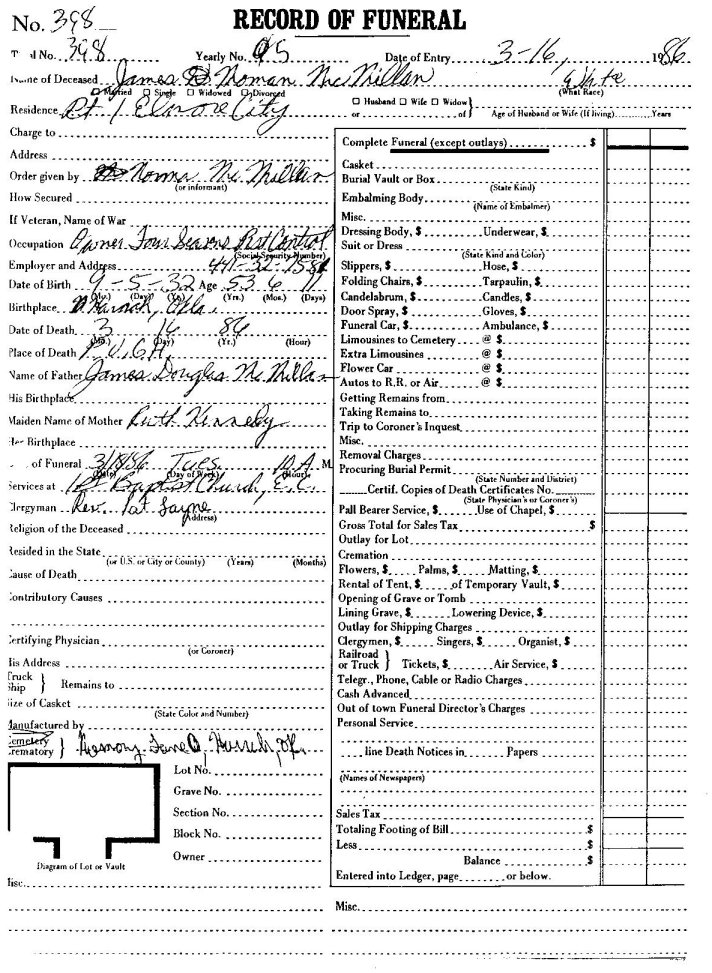 No. 398 RECORD OF FUNERAL
No. 398 Yearly No. 95 Date of Entry 3-16, 1986
Name of Deceased James D. Noman Mc Millan White
☐ Married ☐ Single ☐ Widowed ☐ Divorced (What Race)
☐ Husband ☐ Wife ☐ Widow}
Residence Rt 1 Elmore City or of} Age of Husband or Wife (If living) Years
Charge to
Address
Order given by Norma Mc Millan
(or informant)
How Secured
If Veteran, Name of War
Occupation Owner Four Seasons Pest Control
(Social Security Number)
Employer and Address 441-32-7584
Date of Birth 9-5-32 Age 53 6 11
(Mo.) (Day) (Yr.) (Yrs.) (Mos.) (Days)
Birthplace Okla.
Date of Death 3 16 86
(Mo.) (Day) (Yr.) (Hour)
Place of Death
Name of Father James Douglas Mc Millan
His Birthplace
Maiden Name of Mother Ruth Kennedy
Her Birthplace
of Funeral 3/18/86 Tues. 10 A. M.
(Date) (Day of Week) (Hour)
Services at 1st Baptist Church, E.C.
Clergyman Rev. Pat Layne
(Address)
Religion of the Deceased
Resided in the State
(or U.S. or City or County) (Years) (Months)
Cause of Death
Contributory Causes
Certifying Physician
(or Coroner)
His Address
Truck
Ship } Remains to
Size of Casket
(State Color and Number)
Manufactured by
Cemetery
Crematory }
Lot No.
Grave No.
Section No.
Block No.
Owner
Diagram of Lot or Vault
Misc.
Complete Funeral (except outlays) $
Casket
Burial Vault or Box
(State Kind)
Embalming Body
(Name of Embalmer)
Misc.
Dressing Body, $ Underwear, $
Suit or Dress
(State Kind and Color)
Slippers, $ Hose, $
Folding Chairs, $ Tarpaulin, $
Candelabrum, $ Candles, $
Door Spray, $ Gloves, $
Funeral Car, $ Ambulance, $
Limousines to Cemetery @ $
Extra Limousines @ $
Flower Car @ $
Autos to R.R. or Air @ $
Getting Remains from
Taking Remains to
Trip to Coroner's Inquest
Misc.
Removal Charges
Procuring Burial Permit
(State Number and District)
Certif. Copies of Death Certificates No.
(State Physician's or Coroner's)
Pall Bearer Service, $ Use of Chapel, $
Gross Total for Sales Tax $
Outlay for Lot
Cremation
Flowers, $ Palms, $ Matting, $
Rental of Tent, $ of Temporary Vault, $
Opening of Grave or Tomb
Lining Grave, $ Lowering Device, $
Outlay for Shipping Charges
Clergymen, $ Singers, $ Organist, $
Railroad
or Truck } Tickets, $ Air Service, $
Telegr., Phone, Cable or Radio Charges
Cash Advanced
Out of town Funeral Director's Charges
Personal Service
line Death Notices in Papers
(Names of Newspapers)
Sales Tax
Totaling Footing of Bill $
Less $
Balance $
Entered into Ledger, page or below.
Misc.